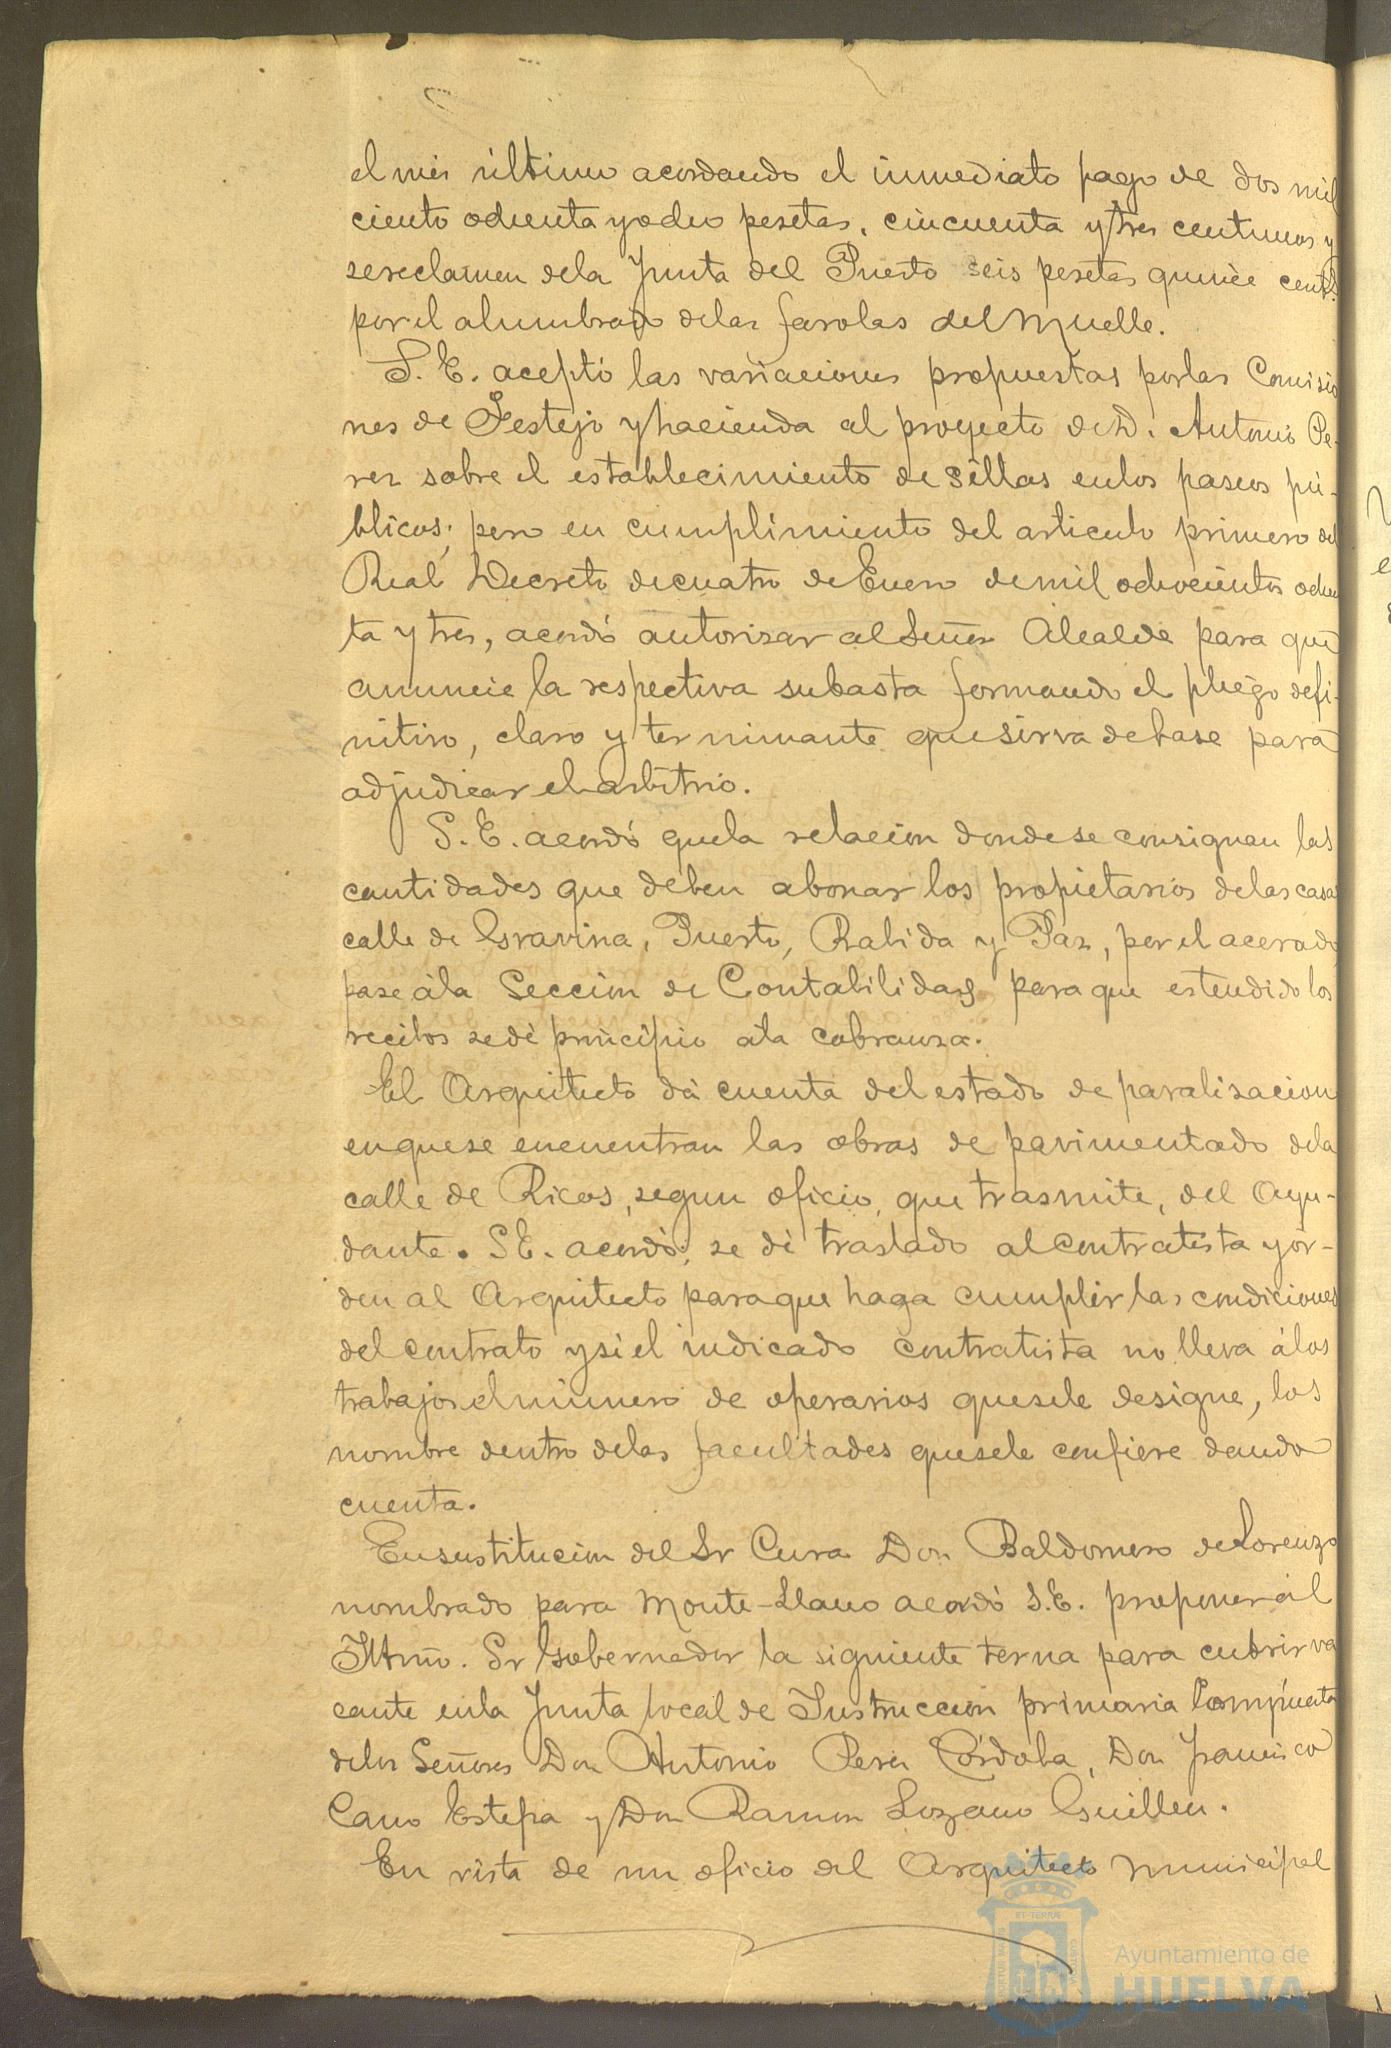 el mes último acordando el inmediato pago de dos mil
ciento ochenta y ocho pesetas, cincuenta y tres centimos y
se reclamen de la Junta del Puerto seis pesetas quince cents.
por el alumbrado de las farolas del Muelle.
S. E. aceptó las variaciones propuestas por las Comisio
nes de Festejo y hacienda al proyecto de D. Antonio Pe-
rez sobre el establecimiento de sillas en los paseos pú-
blicos; pero en cumplimiento del articulo primero del
Real Decreto de cuatro de Enero de mil ochocientos ochen
ta y tres, acordó autorizar al Señor Alcalde para que
anuncie la respectiva subasta formando el pliego defi-
nitivo, claro y terminante que sirva de base para
adjudicar el arbitrio.
S. E. acordó que la relacion donde se consignan las
cantidades que deben abonar los propietarios de las casas
calle de Gravina, Puerto, Rabida y Paz, por el acerado
pase á la Seccion de Contabilidad para que estendido los
recibos se dé principio a la cobranza.
El Arquitecto dá cuenta del estado de paralisacion
en que se encuentran las obras de pavimentado de la
calle de Ricos, segun oficio, que trasmite, del Ayu-
dante. S E. acordó; se dé traslado al contratista y or-
den al Arquitecto para que haga cumplir las condiciones
del contrato y si el indicado contratista no lleva á los
trabajos el número de operarios que se le designe, los
nombre dentro de las facultades que se le confiere dando
cuenta.
En sustitucion del Sr Cura Don Baldomero de Lorenzo
nombrado para Monte-Llano acordó S. E. proponer al
Iltmo. Sr Gobernador la siguiente terna para cubrir va
cante en la Junta local de Instruccion primaria Compuesta
de los Señores Don Antonio Perez Córdoba, Don Francisco
Cano Estepa y Don Ramon Lozano Guillen.
En vista de un oficio del Arquitecto municipal
Ayuntamiento de
HUELVA